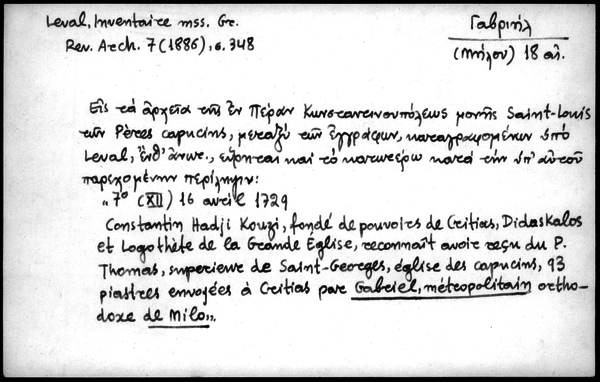 Leval, Inventaire mss. Gr.
Rev. Arch. 7 (1886), σ. 348
Γαβριήλ
(Μήλου) 18 αἰ.
Εἰς τὰ ἀρχεῖα τῆς ἐν Πέραν Κωνσταντινουπόλεως μονῆς Saint-Louis
τῶν Pères capucins, μεταξὺ τῶν ἐγγράφων, καταγραφομένων ὑπὸ
Leval, ἔνθ' ἄνωτ., εὕρηται καὶ τὸ κατωτέρω κατὰ τὴν ὑπ' αὐτοῦ
παρεχομένην περίληψιν:
„ 7º (XII) 16 avril 1729
Constantin Hadji Kouzi, fondé de pouvoirs de Critias, Didaskalos
et Logothète de la Grande Eglise, reconnaît avoir reçu du P.
Thomas, superieur de Saint-Georges, église des capucins, 93
piastres envoyées à Critias par Gabriel, métropolitain ortho-
doxe de Milo„.